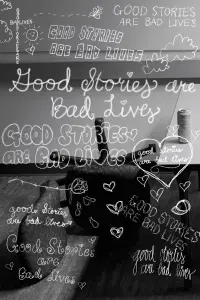 GOOD STORIES
ARE BAD LIVES
GOOD STORIES
ARE BAD LIVES
Good Stories are
Bad Lives
GOOD STORIES
ARE BAD LIVES
good stories
are bad lives
good stories
are bad lives
GOOD STORIES
ARE BAD LIVES
Good Stories
are
Bad Lives
good stories
are bad lives